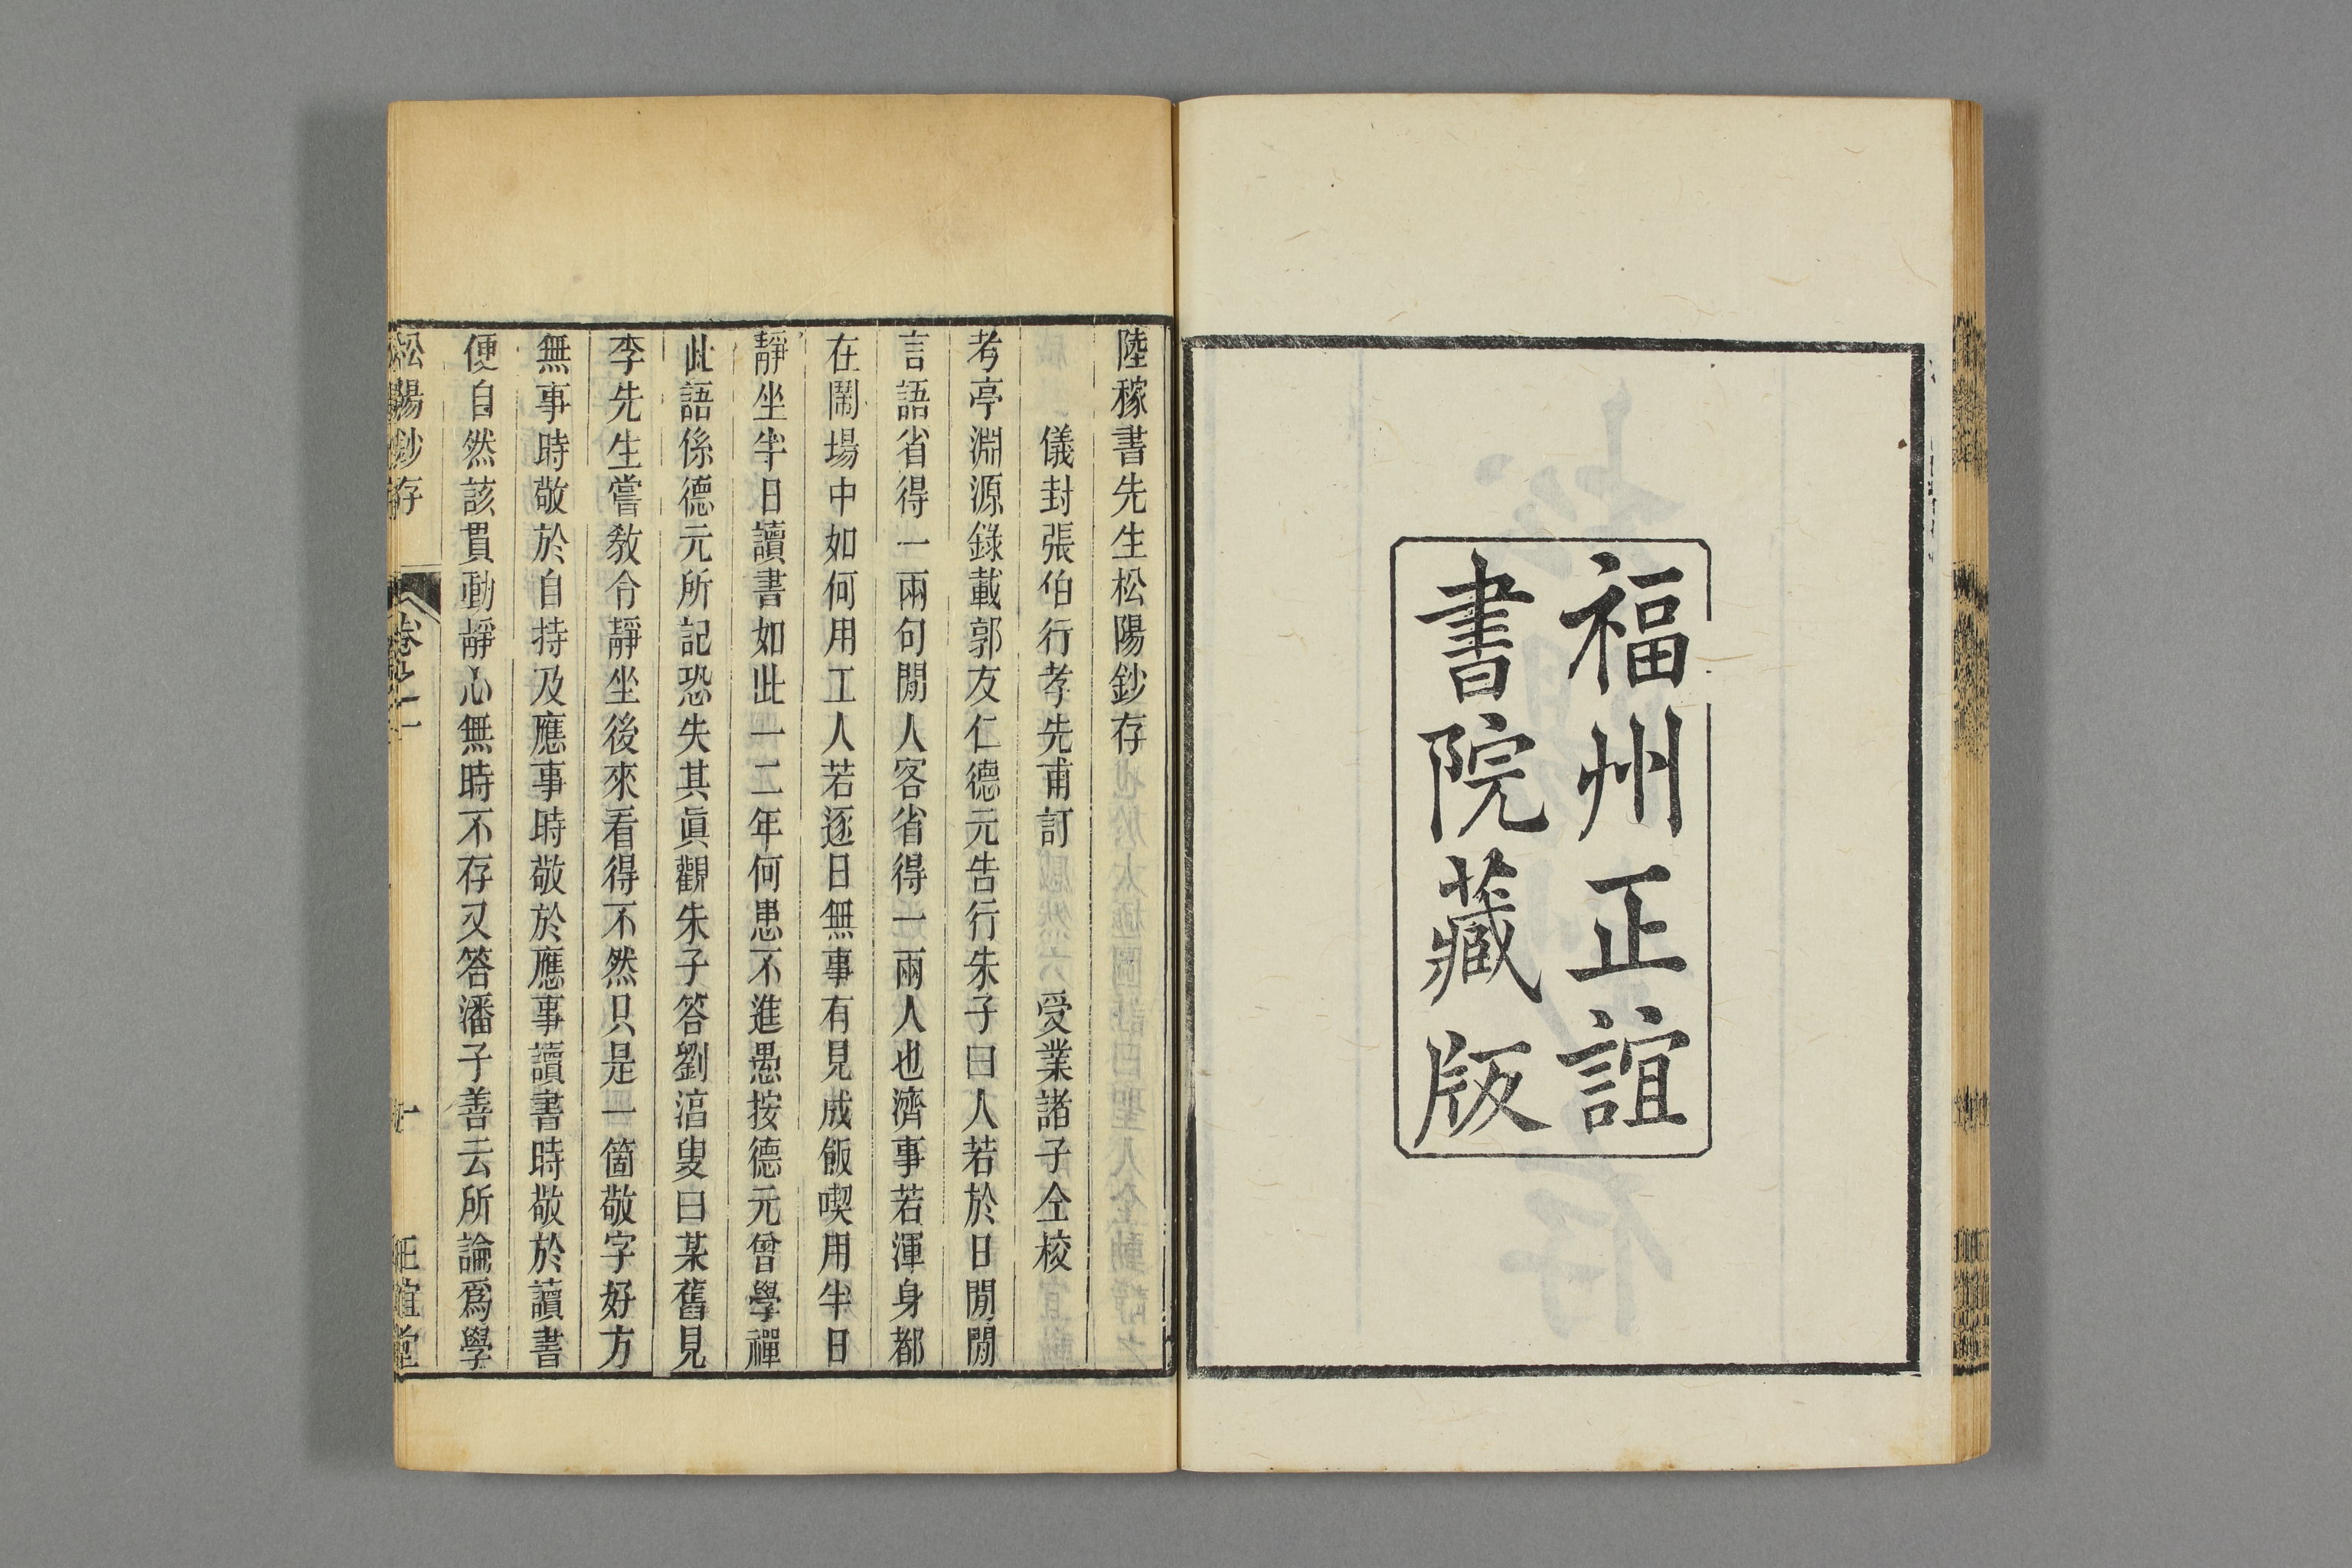 福州正誼
書院藏版
陸稼書先生松陽鈔存
儀封張伯行孝先甫訂 受業諸子仝校
考亭淵源錄載郭友仁德元告行朱子曰人若於日閒閒
言語省得一兩句閒人客省得一兩人也濟事若渾身都
在鬧場中如何用工人若逐日無事有見成飯喫用半日
靜坐半日讀書如此一二年何患不進愚按德元曾學禪
此語係德元所記恐失其眞觀朱子答劉淊叟曰某舊見
李先生嘗敎令靜坐後來看得不然只是一箇敬字好方
無事時敬於自持及應事時敬於應事讀書時敬於讀書
便自然該貫動靜心無時不存又答潘子善云所論爲學
松陽鈔存 卷之一 一 正誼堂